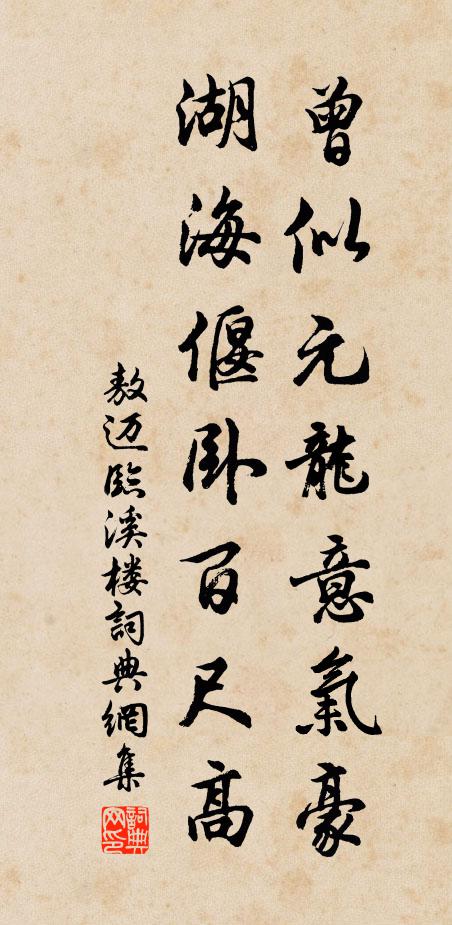 曾似元龍意氣豪
湖海偃卧百尺高
敖迈臨溪楼詞典網集
詞典网印